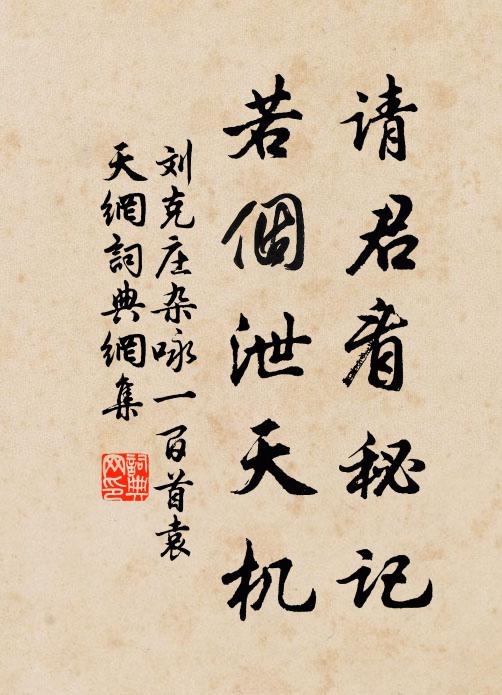 请君看秘记
若個泄天机
刘克庄杂咏一百首袁
天網詞典網集
詞典网印